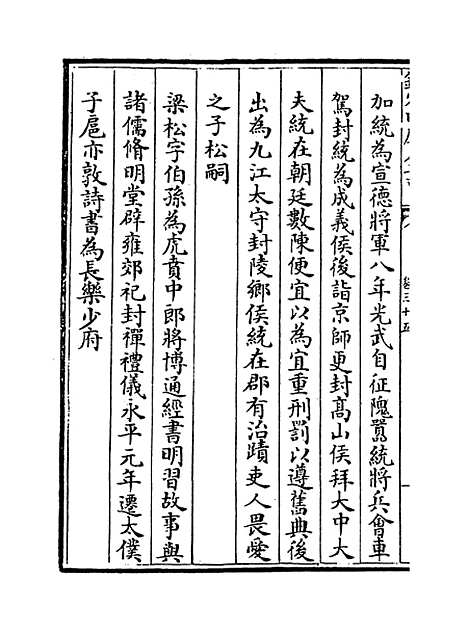 加統為宣德將軍八年光武自征隗囂統將兵會車
駕封統為成義侯後詣京師更封髙山侯拜大中大
夫統在朝廷數陳便宜以為宜重刑罰以遵舊典後
出為九江太守封陵鄉侯統在郡有治蹟吏人畏愛
之子松嗣
梁松字伯孫為虎賁中郎將博通經書明習故事與
諸儒脩明堂辟雍郊祀封禪禮儀永平元年遷太僕
子扈亦敦詩書為長樂少府